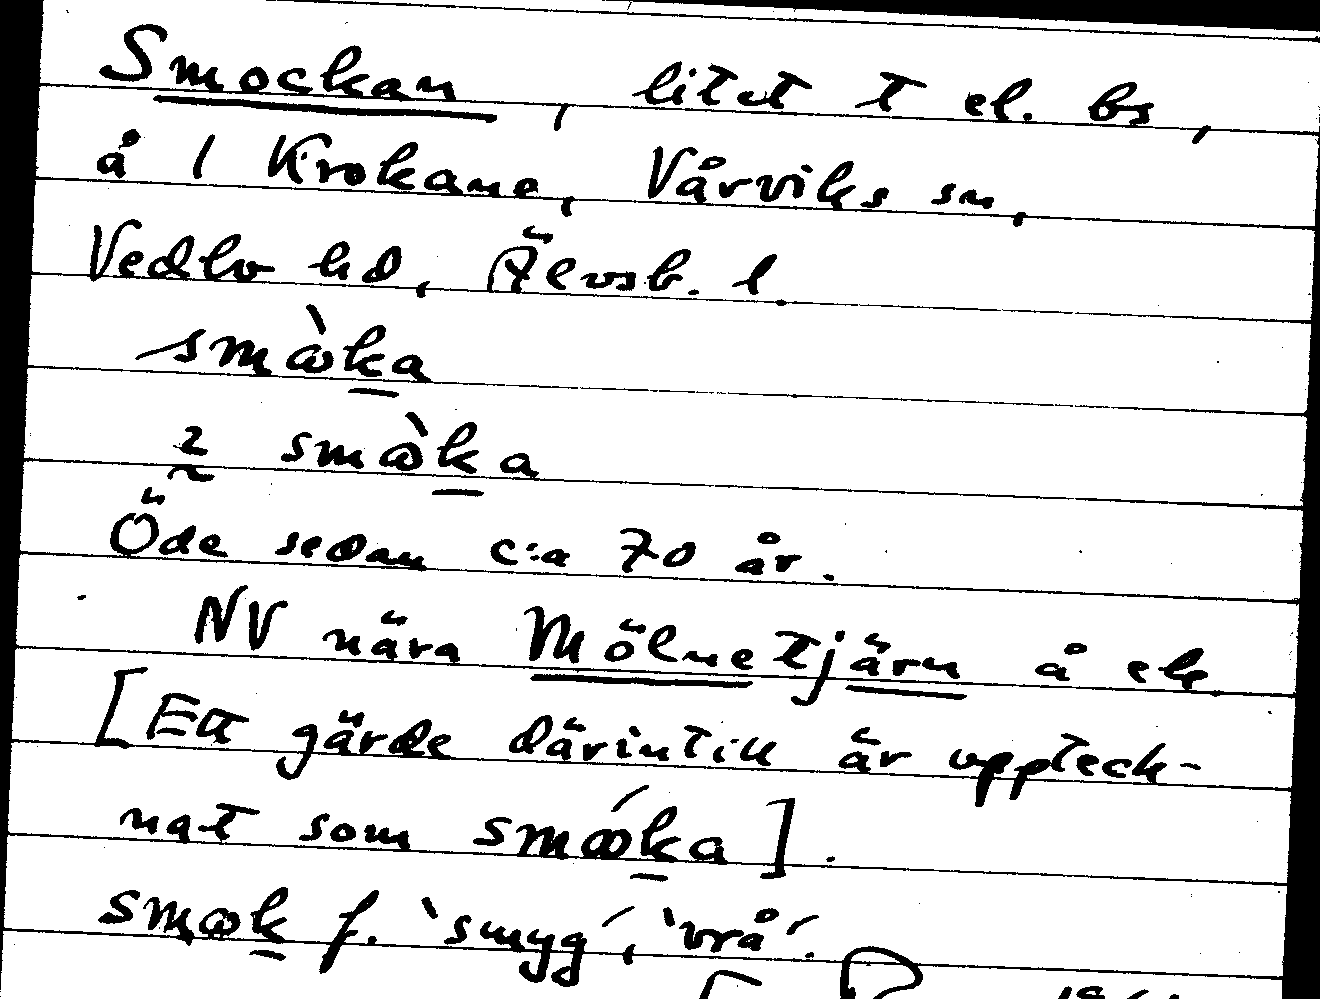 Smockan, litet t el. bs,
å 1 Krokane, Vårviks sn,
Vedbo hd, Älvsb. l.
smὰka
2 smὰka
Öde sedan c:a 70 år.
NV nära Mölnetjärn å ek.
[Ett gärde därintill är uppteck-
nat som smka].
smk f. `smyg´, `vrå´.